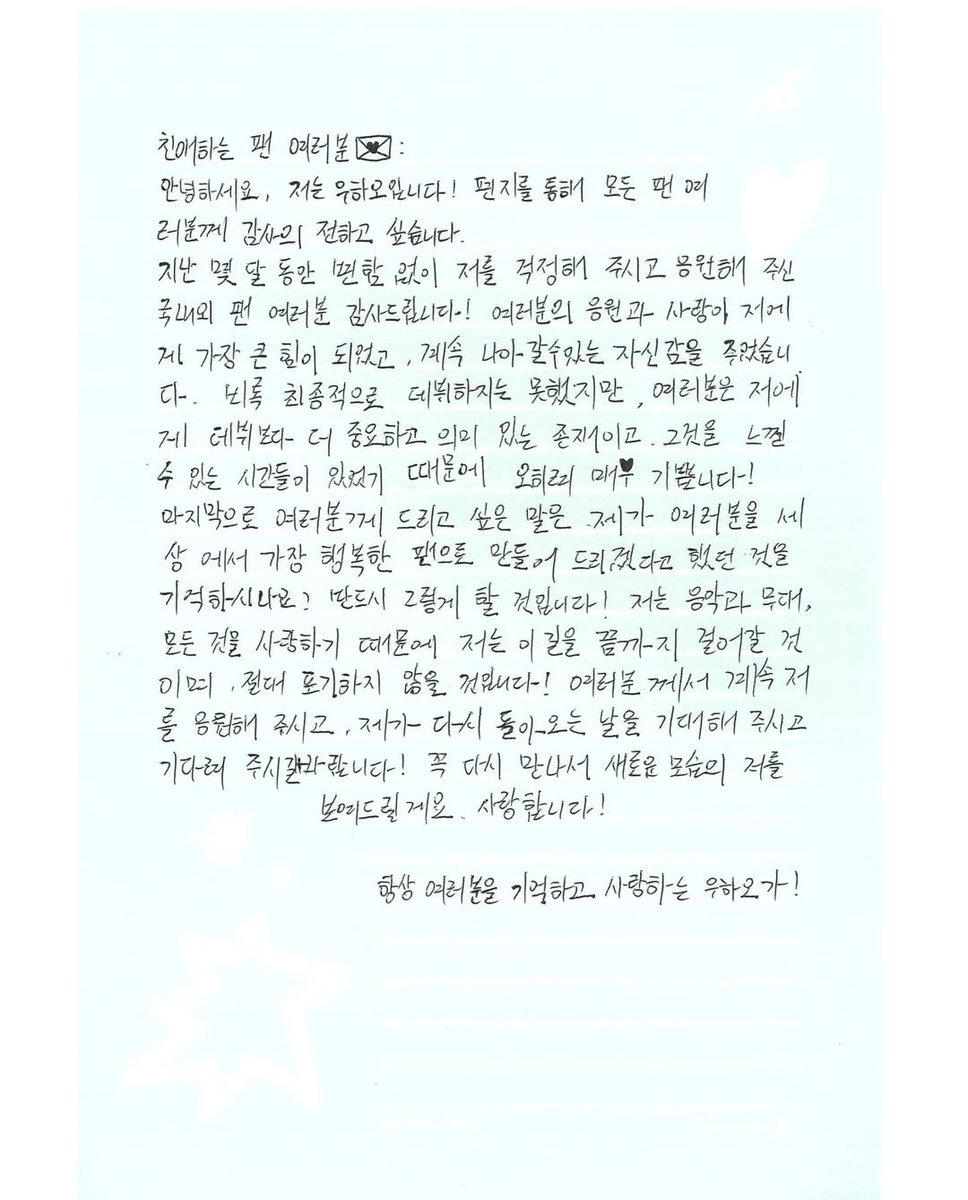 친애하는 팬 여러분💌:
안녕하세요, 저는 우하오입니다! 편지를 통해 모든 팬 여
러분께 감사의 전하고 싶습니다.
지난 몇 달 동안 변함 없이 저를 걱정해 주시고 응원해 주신
국내외 팬 여러분 감사드립니다! 여러분의 응원과 사랑이 저에
게 가장 큰 힘이 되었고, 계속 나아갈수있는 자신감을 주었습니
다. 비록 최종적으로 데뷔하지는 못했지만, 여러분은 저에
게 데뷔보다 더 중요하고 의미 있는 존재이고, 그것을 느낄
수 있는 시간들이 있었기 때문에 오히려 매우♥ 기쁩니다!
마지막으로 여러분께 드리고 싶은 말은, 제가 여러분을 세
상 에서 가장 행복한 팬으로 만들어 드리겠다고 했던 것을
기억하시나요? 반드시 그렇게 할 것입니다! 저는 음악과 무대,
모든 것을 사랑하기 때문에 저는 이 길을 끝까지 걸어갈 것
이며, 절대 포기하지 않을 것입니다! 여러분께서 계속 저
를 응원해 주시고, 제가 다시 돌아오는 날을 기대해 주시고
기다려 주시길바랍니다! 꼭 다시 만나서 새로운 모습의 저를
보여드릴게요. 사랑합니다!
항상 여러분을 기억하고 사랑하는 우하오가!